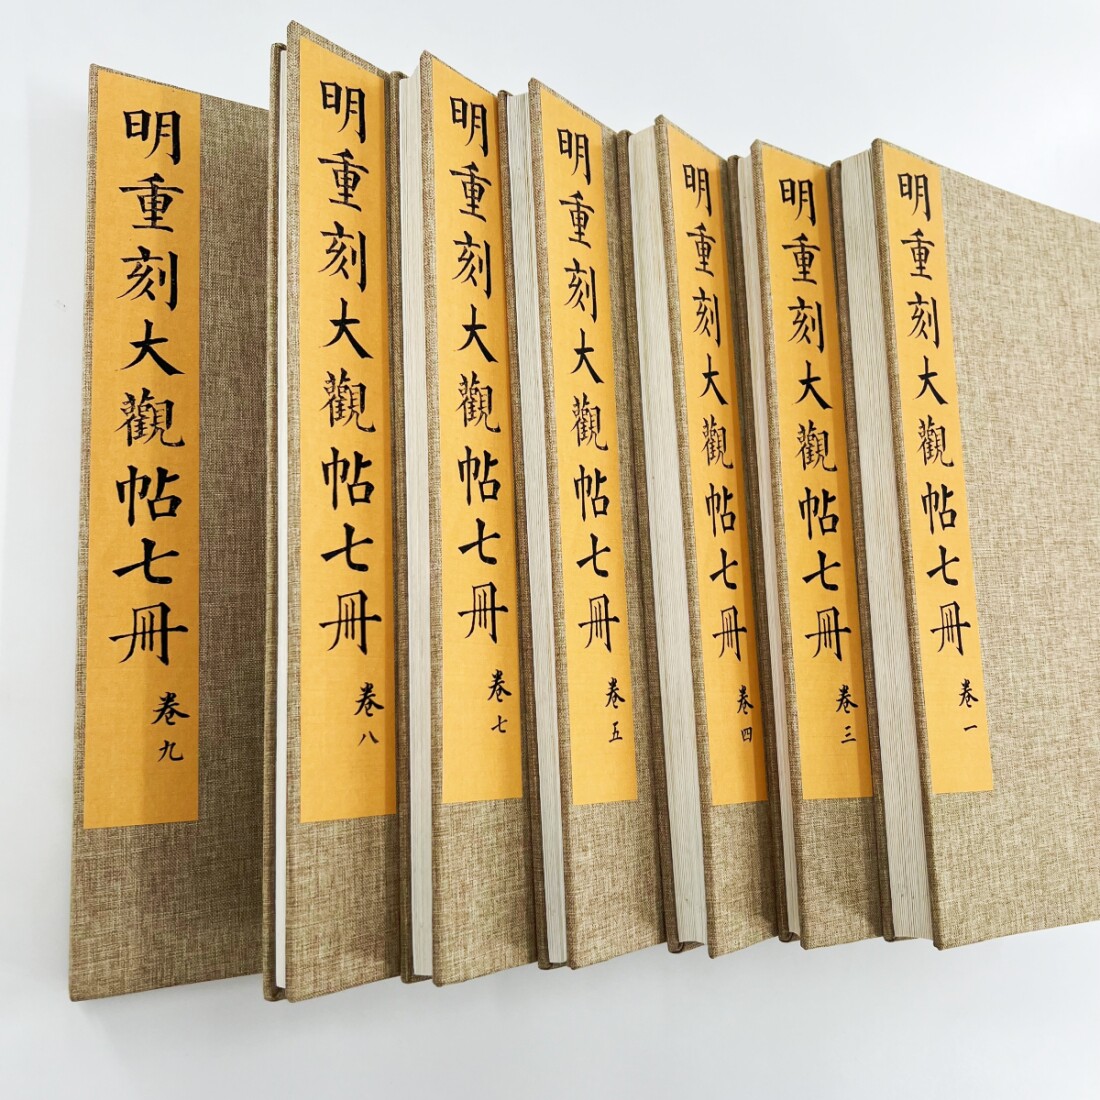 明重刻大觀帖七冊
卷一
明重刻大觀帖七冊
卷三
明重刻大觀帖七冊
卷四
明重刻大觀帖七冊
卷五
明重刻大觀帖七冊
卷七
明重刻大觀帖七冊
卷八
明重刻大觀帖七冊
卷九